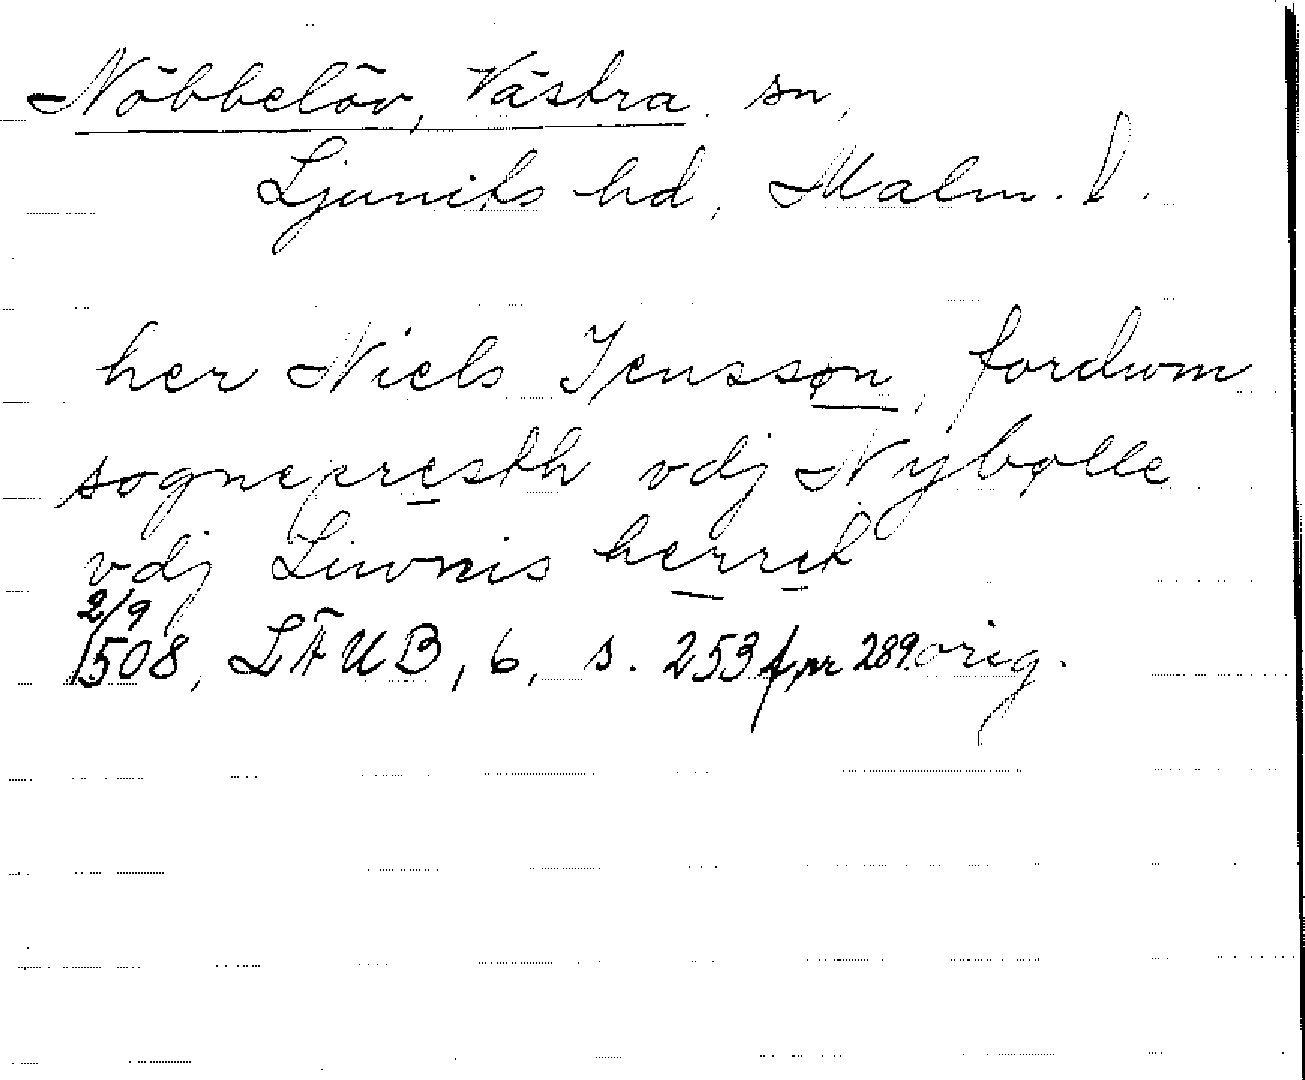 Nöbbelöv, Västra sn,
Ljunits hd, Malm. l.
her Niels Jensson, fordwm
sognepresth vdj Nybølle
vdj Liwnis herrit
2/9
1508, LÄUB, 6, s. 253 f, nr 289. orig.